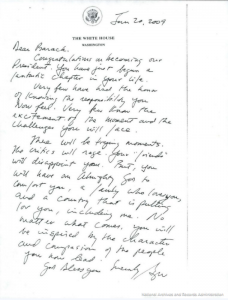 Jan 20, 2009
THE WHITE HOUSE
WASHINGTON
Dear Barack,
Congratulations on becoming our
President. You have just begun a
fantastic chapter in your life.
Very few have had the honor
of knowing the responsibility you
now feel. Very few know the
excitement of the moment and the
challenges you will face.
There will be trying moments.
The critics will rage. Your "friends"
will disappoint you. But, you
will have an Almighty God to
comfort you, a family who loves you,
and a country that is pulling
for you, including me. No
matter what comes, you will
be inspired by the character
and compassion of the people
you now lead.
God bless you.
Sincerely,